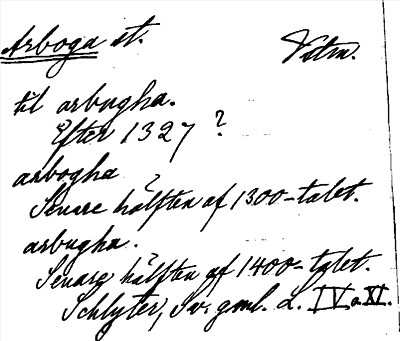 Arboga st. Vstm.
til arbugha.
Efter 1327?
arbogha
Senare hälften af 1300-talet.
arbugha.
Senare hälften af 1400-talet.
Schlyter, Sv. gml. L. IV o. XI.